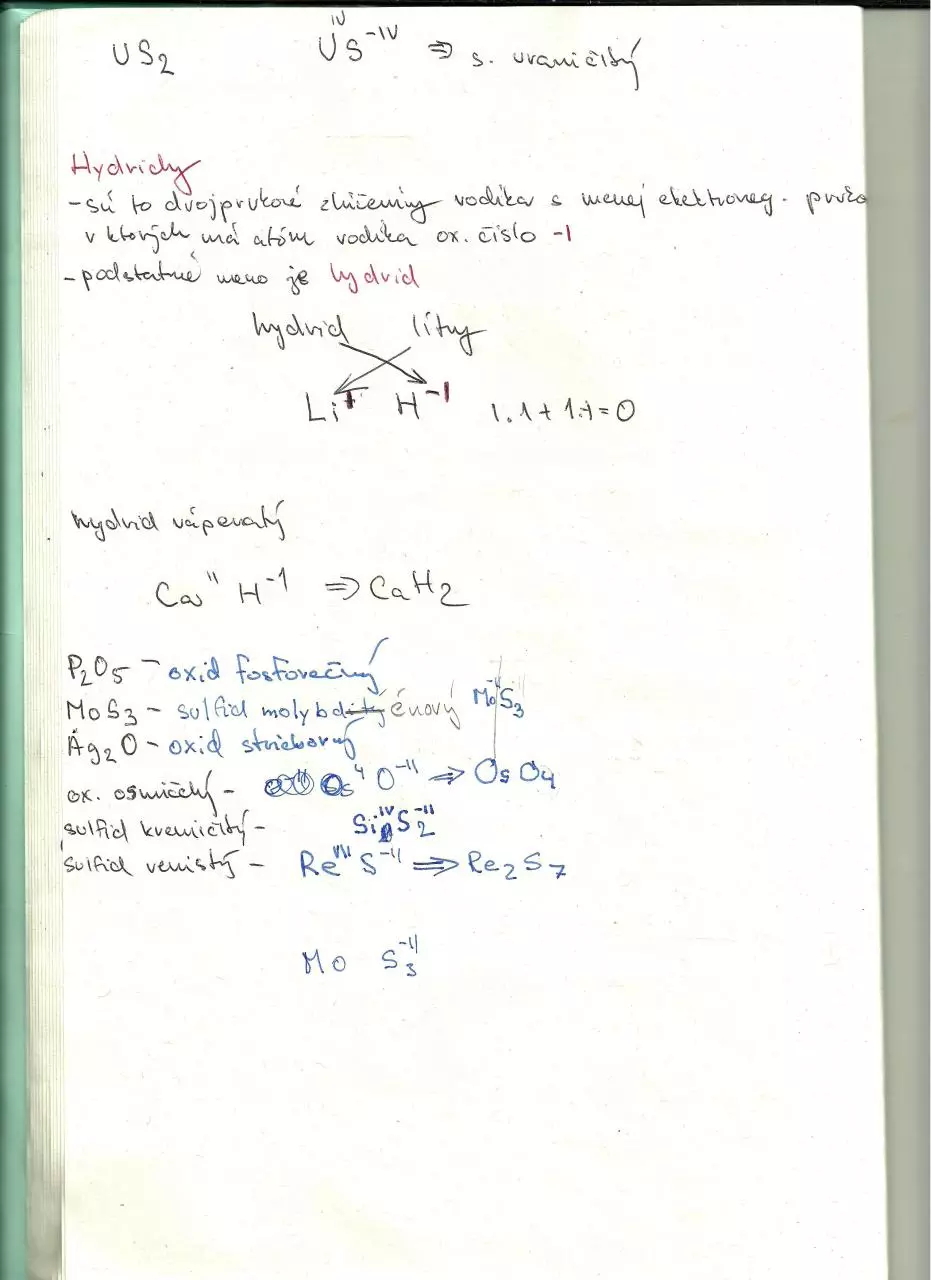 US₂ U^IV S^-IV ⇒ s. uraničitý
Hydridy
- sú to dvojprvkové zlúčeniny vodíka s menej elektroneg.
v ktorých má atóm vodíka ox. číslo -1
- podstatné meno je hydrid
hydrid lítny
Li⁺ H⁻¹ 1.1 + 1.-1 = 0
hydrid vápenatý
Ca^II H⁻¹ ⇒ CaH₂
P₂O₅ - oxid fosforečný
MoS₃ - sulfid molybdénový Mo S₃
Ag₂O - oxid strieborný
ox. osmičelý - Os O^-II ⇒ OsO₄
sulfid kremičitý - Si^IV S₂^-II
sulfid renistý - Re^VII S^-II ⇒ Re₂S₇
Mo S₃^-II